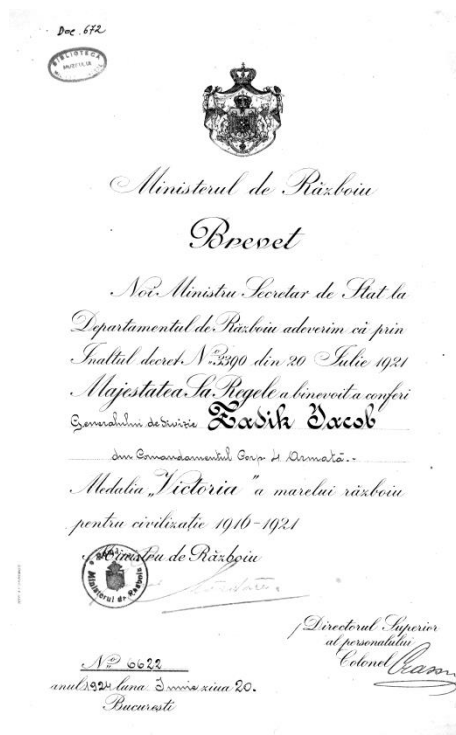 Doc. 672
BIBLIOTECA
Ministerul de Război
Brevet
Noi Ministru Secretar de Stat la
Departamentul de Război adeverim că prin
Înaltul decret No. 3390 din 20 Iulie 1921
Majestatea Sa Regele a binevoit a conferi
Generalului de divizie Zadik Jacob
din Comandamentul Corp 4 Armată.-
Medalia „Victoria” a marelui război
pentru civilizație 1916-1921
Ministru de Război
Ministerul de Război
Directorul Superior
al personalului
Colonel
No. 6622
anul 1924 luna Iunie ziua 20.
București